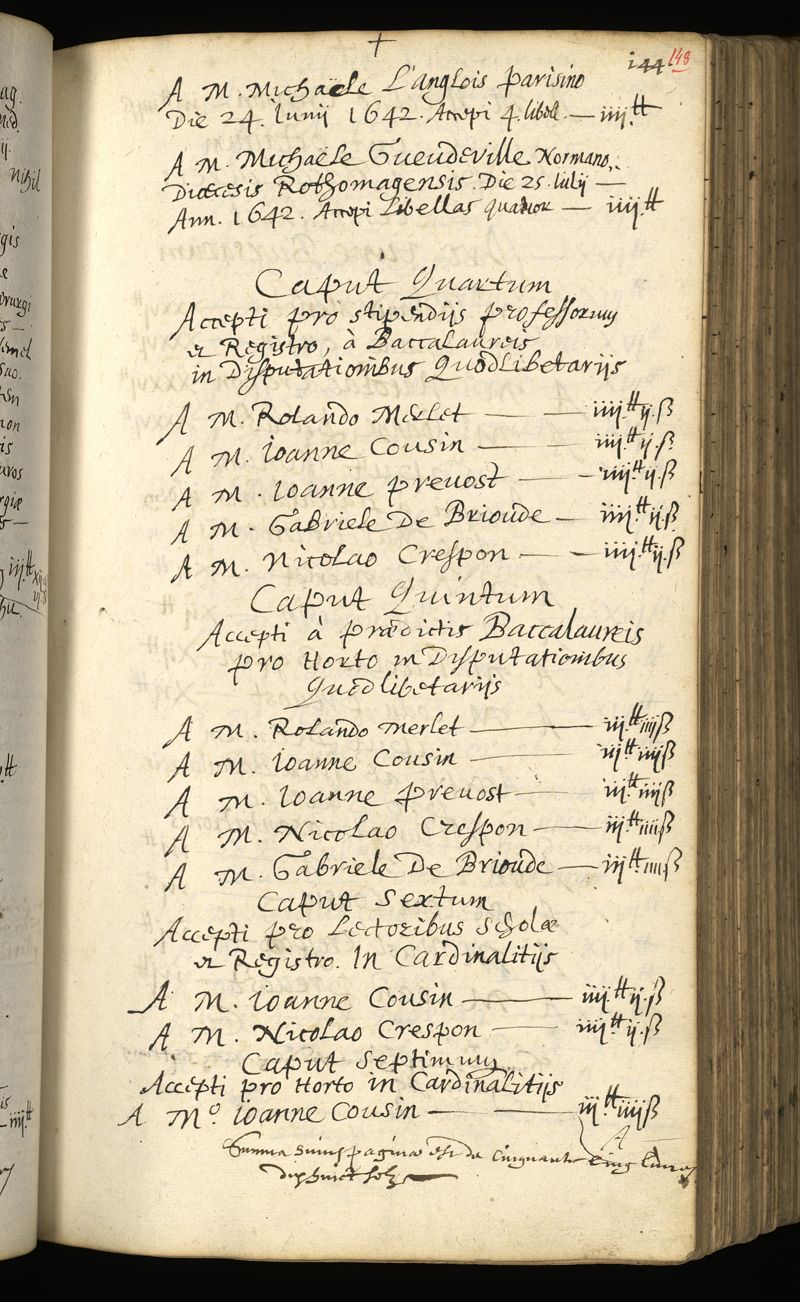 +
144 148
A M. Michaële L'anglois parisino
Die 24. Iunij 1642. Accepi 4. libell. — iiij.tt
A M. Michaele Gueudeville Normano,
Diœcesis Rothomagensis. Die 25. Iulij —
Ann. 1642. Accepi Libellas quatuor — iiij.tt
Caput Quartum
Accepti pro stipendijs professorum
et Registro, à Baccalaureis
in Disputationibus Quodlibetarijs
A M. Rolando Merlet — — iiij.tt ij.ß
A M. Ioanne Cousin — — iiij.tt ij.ß
A M. Ioanne prevost — — iiij.tt ij.ß
A M. Gabriele De Brioude — iiij.tt ij.ß
A M. Nicolao Crespon — — iiij.tt ij.ß
Caput Quintum
Accepti à prædictis Baccalaureis
pro Horto in Disputationibus
Quodlibetarijs
A M. Rolando Merlet — iij.tt iiijß
A M. Ioanne Cousin — iij.tt iiijß
A M. Ioanne prevost — iij.tt iiijß
A M. Nicolao Crespon — iij.tt iiijß
A M. Gabriele De Brioude — iij.tt iiijß
Caput Sextum
Accepti pro Lectoribus Scholæ
et Registro. In Cardinalitijs
A M. Ioanne Cousin — iiij.tt ij.ß
A M. Nicolao Crespon — iiij.tt ij.ß
Caput Septimum
Accepti pro Horto in Cardinalitijs
A Mo. Ioanne Cousin — — iij.tt iiijß
Summa huius paginæ est de cinquante cinq livres
dix huict solz